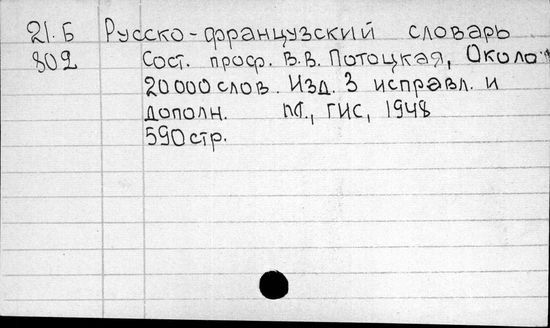 21.Б Русско-французский словарь
802 Сост. проф. В.В. Потоцкая, Около
20000 слов. Изд. 3 исправл. и
дополн. М., ГИС, 1948
590 стр.